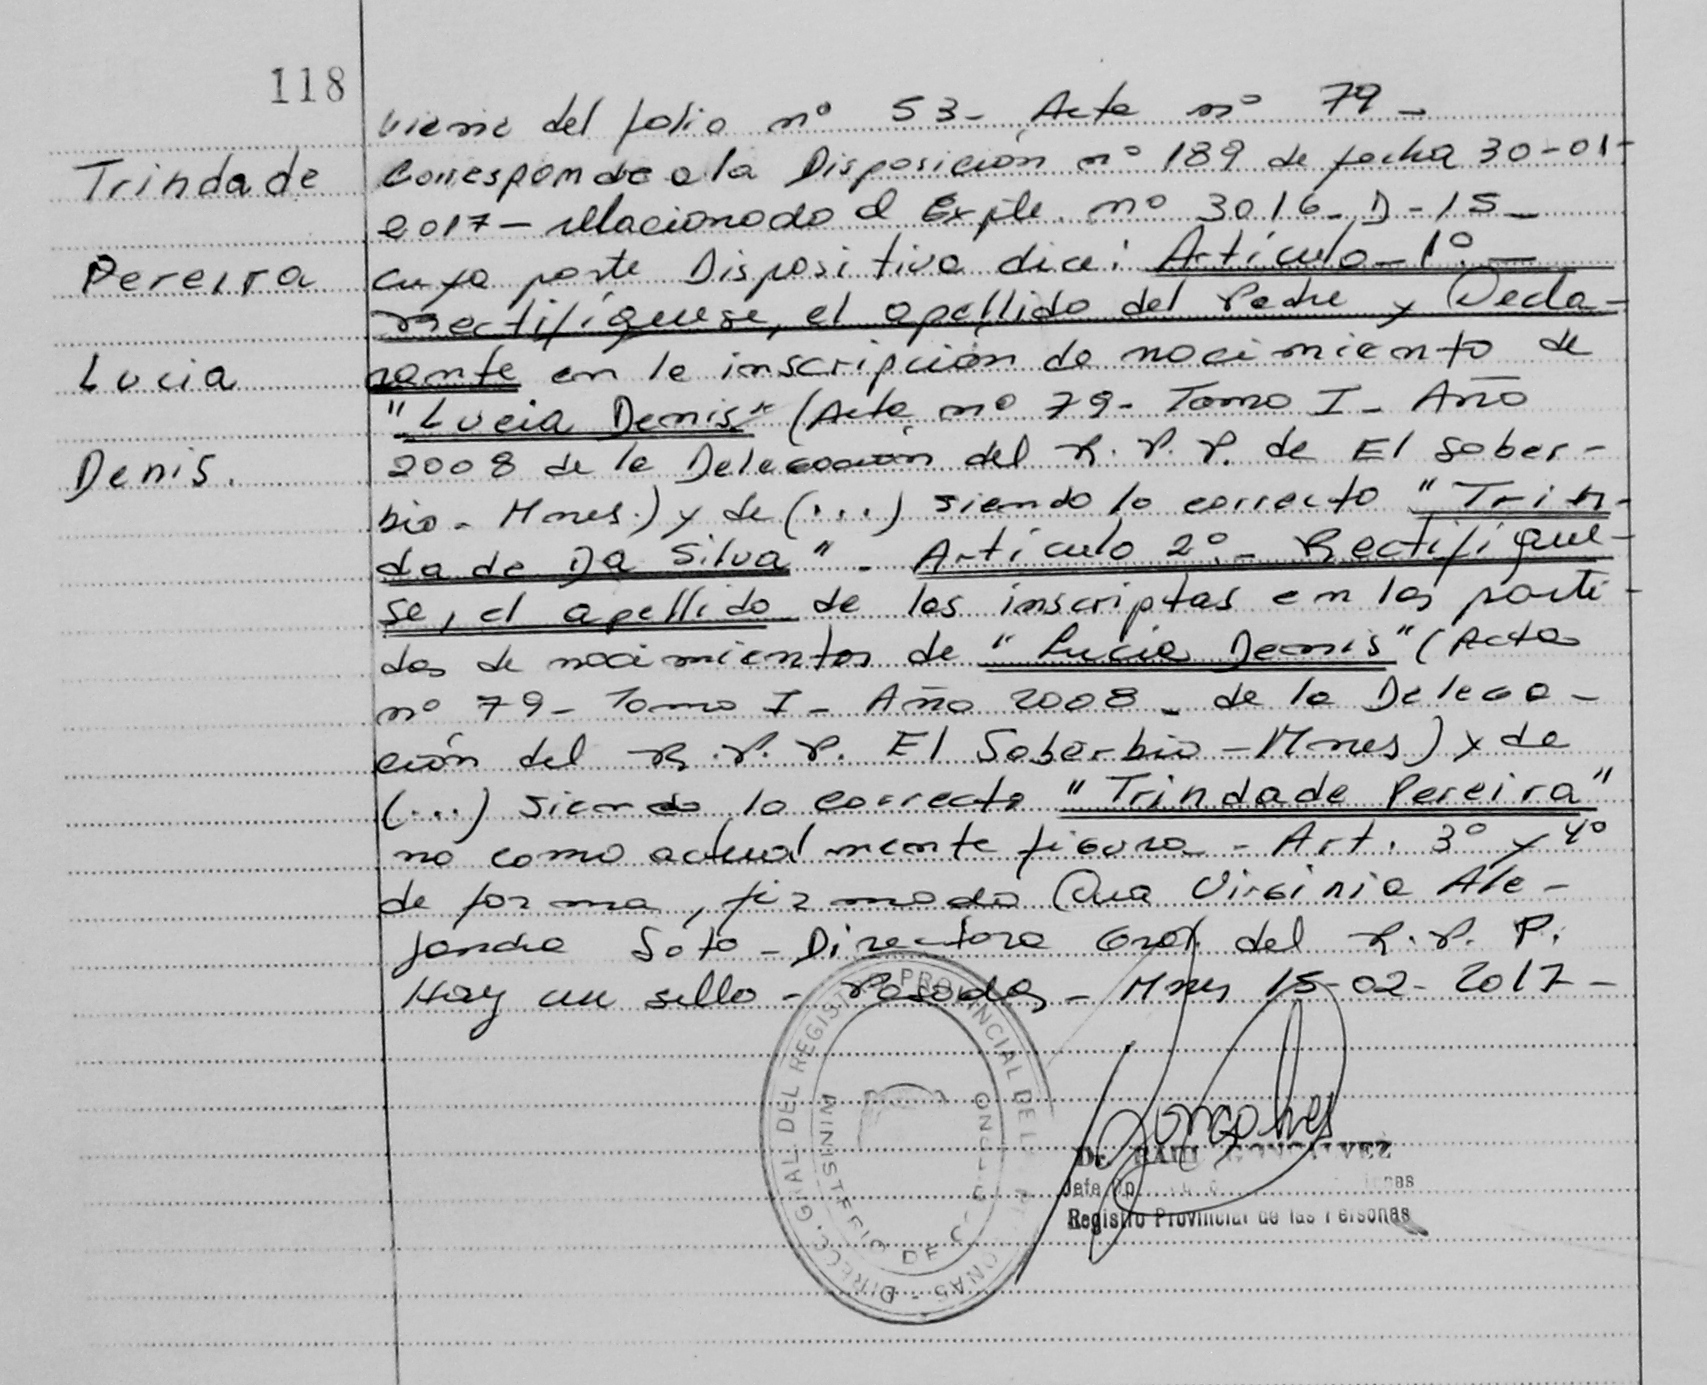 118
Trindade
Pereira
Lucia
Denis.
viene del folio nº 53- Acta nº 79-
Corresponde a la Disposición nº 189 de fecha 30-01-
2017- relacionado al Expte. nº 3016-D-15-
cuya parte Dispositiva dice: Artículo-1º.-
rectifíquese, el apellido del Padre y Decla-
rante en la inscripción de nacimiento de
"Lucia Denis" (Acta nº 79- Tomo I- Año
2008 de la Delegación del R.P.P. de El Sober-
bio- Mnes.) y de (...) siendo lo correcto "Trin-
dade Da Silva"- Artículo 2º.- Rectifíque-
se, el apellido de las inscriptas en las parti-
das de nacimientos de "Lucia Denis" (Acta
nº 79- Tomo I- Año 2008- de la Delega-
ción del R.P.P. El Soberbio-Mnes) y de
(...) siendo lo correcto "Trindade Pereira"
no como actualmente figura- Art. 3º y 4º
de forma, firmado Ana Virginia Ale-
jandra Soto- Directora Gral. del R.P.P.
Hay un sello- Posadas- Mnes 15-02-2017-
DIRECC. GRAL. DEL REGISTRO PROVINCIAL DE LAS PERSONAS -
MINISTERIO DE GOBIERNO
Dr. RAUL GONCALVEZ
Jefe Dp.
Registro Provincial de las Personas